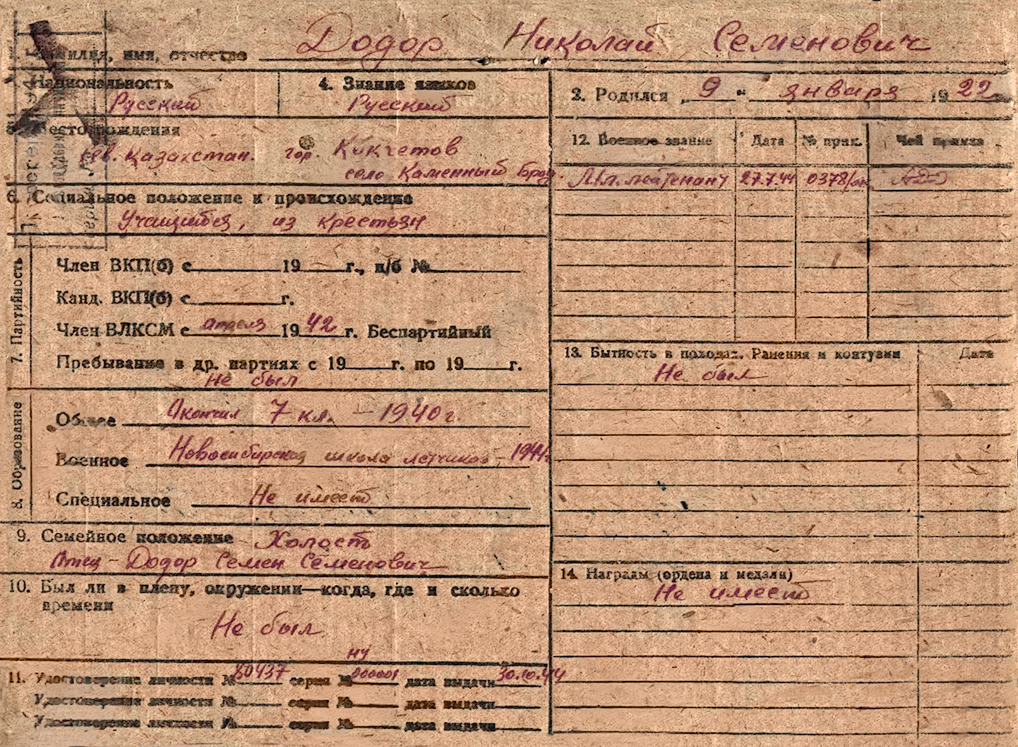 Фамилия, имя, отчество Додор Николай Семенович
Национальность
Русский
4. Знание языков
Русский
2. Родился „9" января 1922
5. Место рождения
сев. Казахстан. гор. Кокчетов
село Каменный Брод.
6. Социальное положение и происхождение
Учащийся, из крестьян
7. Партийность
Член ВКП(б) с 19 г., п/б №
Канд. ВКП(б) с г.
Член ВЛКСМ с апреля 1942 г. Беспартийный
Пребывание в др. партиях с 19 г. по 19 г.
Не был
8. Образование
Общее Окончил 7 кл. – 1940 г.
Военное Новосибирская школа летчиков – 1944
Специальное Не имеет
9. Семейное положение Холост
Отец – Додор Семен Семенович
10. Был ли в плену, окружении—когда, где и сколько
времени
Не был
11. Удостоверение личности № 80437 серия № НУ 000001 дата выдачи 30.10.44
Удостоверение личности № серия № дата выдачи
Удостоверение личности № серия № дата выдачи
12. Военное звание Дата № прик. Чей приказ
Мл. лейтенант 27.7.44 0378/ АДД
13. Бытность в походах. Ранения и контузии Дата
Не был
14. Награды (ордена и медали)
Не имеет